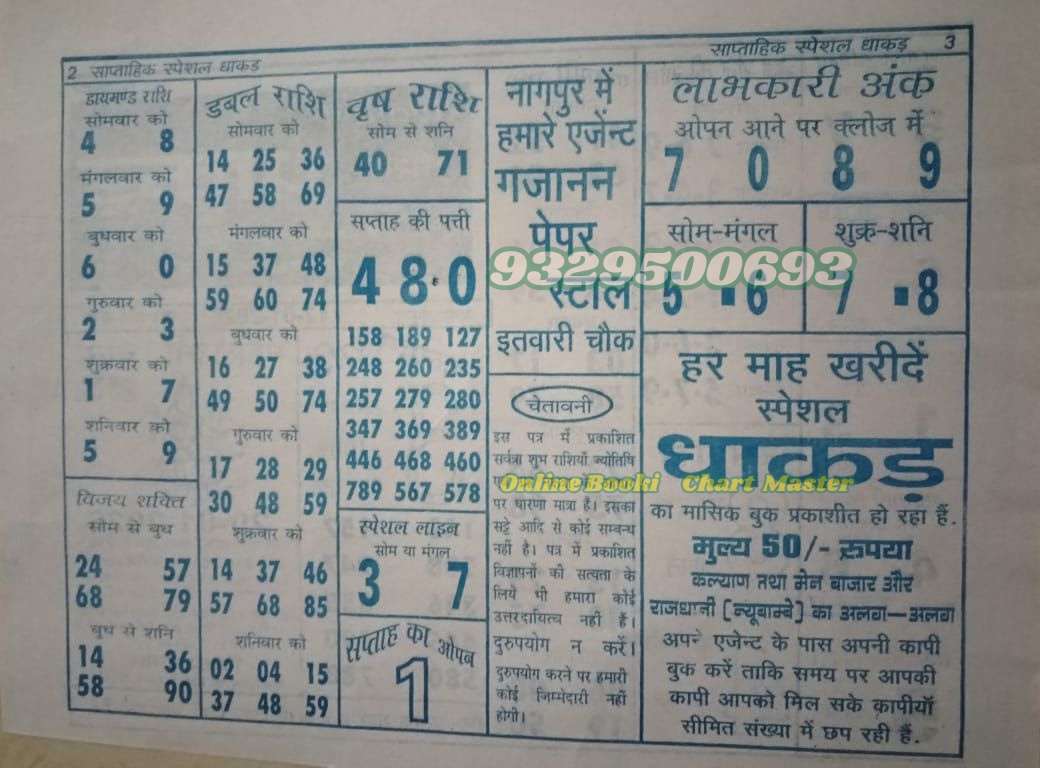 2 साप्ताहिक स्पेशल धाकड
साप्ताहिक स्पेशल धाकड़ 3
डायमण्ड राशि
सोमवार को
4 8
मंगलवार को
5 9
बुधवार को
6 0
गुरुवार को
2 3
शुक्रवार को
1 7
शनिवार को
5 9
विजय शक्ति
सोम से बुध
24 57
68 79
बुध से शनि
14 36
58 90
डुबल राशि
सोमवार को
14 25 36
47 58 69
मंगलवार को
15 37 48
59 60 74
बुधवार को
16 27 38
49 50 74
गुरुवार को
17 28 29
30 48 59
शुक्रवार को
14 37 46
57 68 85
शनिवार को
02 04 15
37 48 59
वृष राशि
सोम से शनि
40 71
सप्ताह की पत्ती
4 8 0
158 189 127
248 260 235
257 279 280
347 369 389
446 468 460
789 567 578
स्पेशल लाइन
सोम या मंगल
3 7
सप्ताह का ओपन
1
नागपुर में
हमारे एजेन्ट
गजानन
पेपर
स्टॉल
इतवारी चौक
चेतावनी
इस पत्र में प्रकाशित
सर्वत्रा शुभ राशियाँ ज्योतिषि
पर धारणा मात्रा है। इसका
सट्टे आदि से कोई सम्बन्ध
नहीं है। पत्र में प्रकाशित
विज्ञापनों की सत्यता के
लिये भी हमारा कोई
उत्तरदायित्व नहीं है।
दुरुपयोग न करें।
दुरुपयोग करने पर हमारी
कोई जिम्मेदारी नहीं
होगी।
लाभकारी अंक
ओपन आने पर क्लोज में
7 0 8 9
सोम-मंगल
5 ▪ 6
शुक्र-शनि
7 ▪ 8
हर माह खरीदें
स्पेशल
धाकड़
का मासिक बुक प्रकाशीत हो रहा हैं.
मुल्य 50/- रूपया
कल्याण तथा मेन बाजार और
राजधानी (न्यूबाम्बे) का अलग-अलग
अपने एजेन्ट के पास अपनी कापी
बुक करें ताकि समय पर आपकी
कापी आपको मिल सके कापीयाँ
सीमित संख्या में छप रही हैं.
9329500693
Online Booki Chart Master